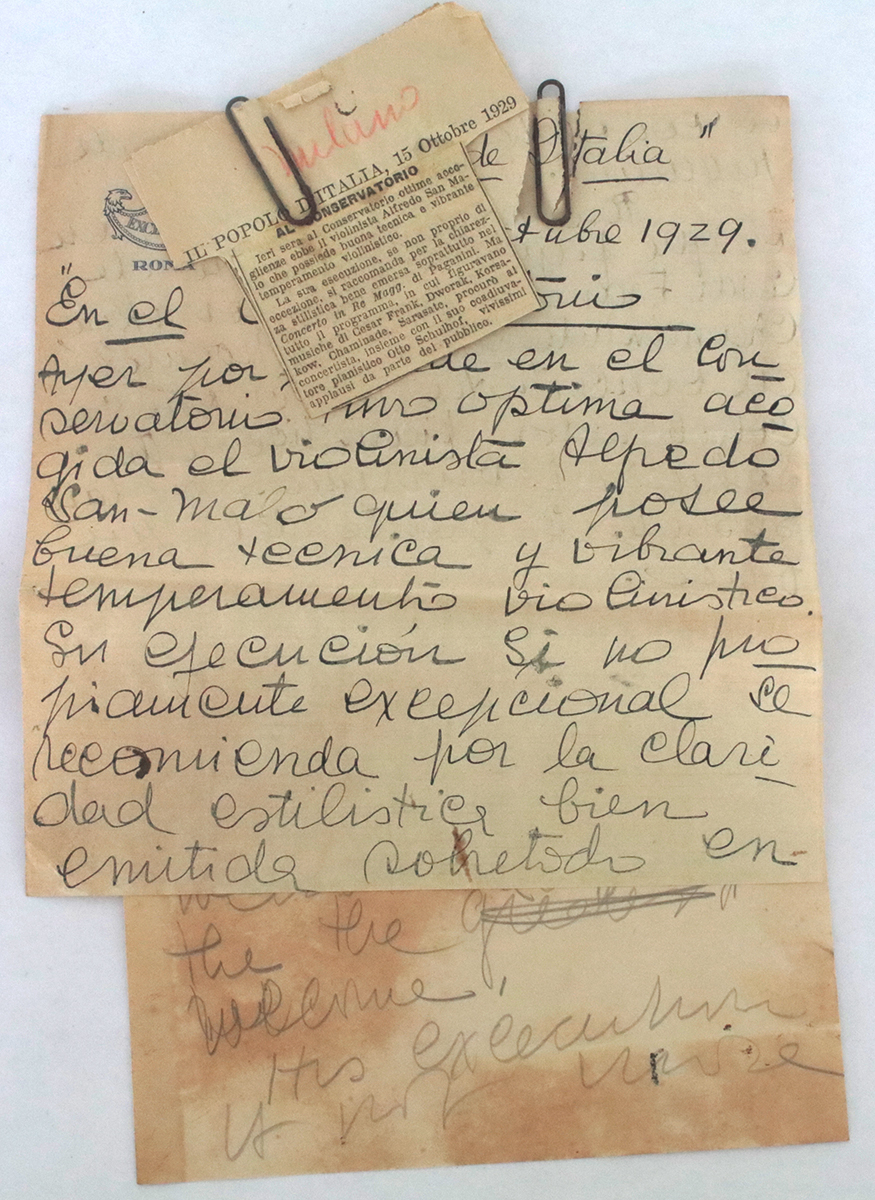 Milano
IL POPOLO D'ITALIA, 15 Ottobre 1929
AL CONSERVATORIO
Ieri sera al Conservatorio ottime acco-
glienze ebbe il violinista Alfredo San Ma-
lo che possiede buona tecnica e vibrante
temperamento violinistico.
La sua esecuzione, se non proprio di
eccezione, si raccomanda per la chiarez-
za stilistica bene emersa soprattutto nel
Concerto in Re Magg. di Paganini. Ma
tutto il programma, in cui figuravano
musiche di Cesar Frank, Dworak, Korsa-
kow, Chaminade, Sarasate, procurò al
concertista, insieme con il suo coadiuva-
tore pianistico Otto Schulhof, vivissimi
applausi da parte del pubblico.
de Italia"
ctubre 1929.
ROMA
"En el
Ayer por de en el con
servatorio tuvo optima aco
gida el violinista Alfredo
San-Malo quien posee
buena tecnica y vibrante
temperamento violinistico.
Su ejecución si no pro
piamente excepcional se
recomienda por la clari
dad estilistica bien
emitida sobretodo en-
the the
welcome,
His execution
if not